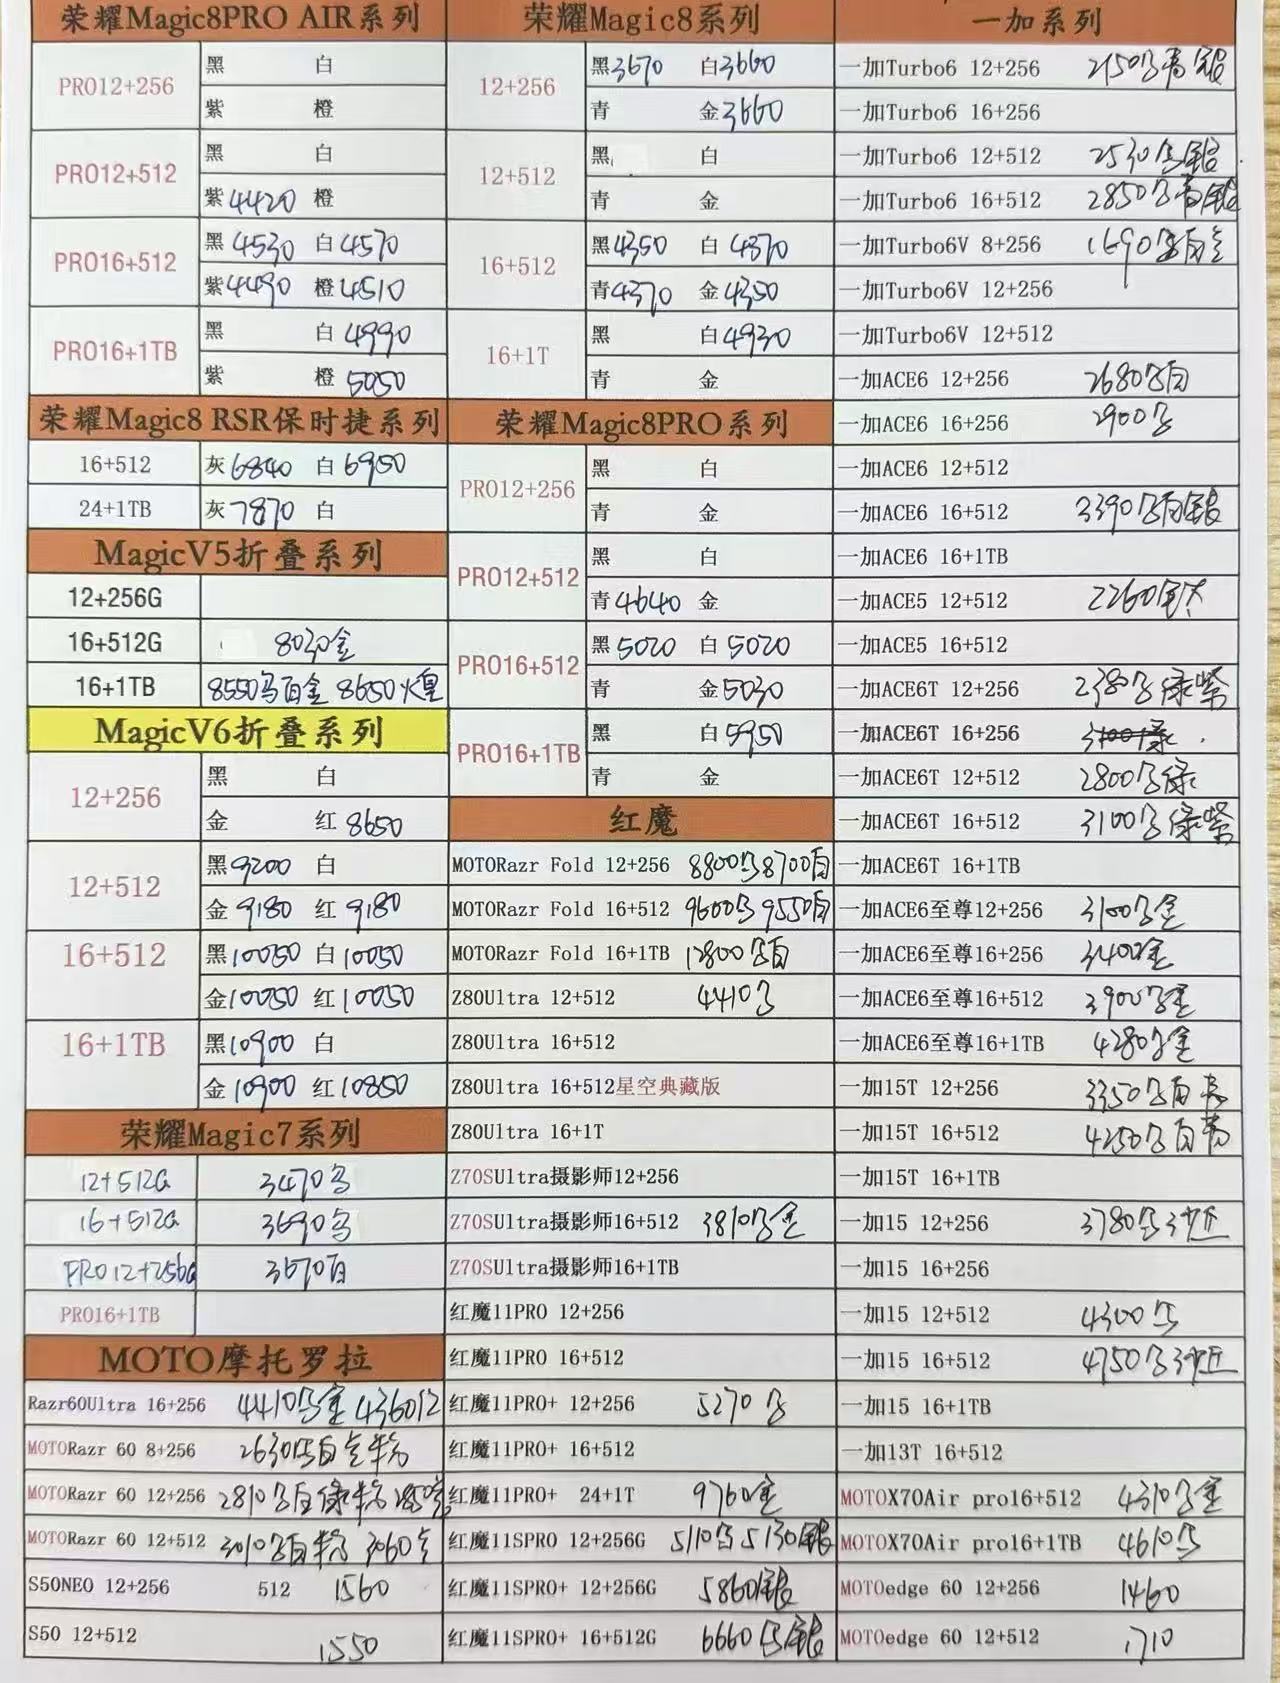 荣耀Magic8PRO AIR系列
PRO12+256 黑 白
紫 橙
PRO12+512 黑 白
紫4420 橙
PRO16+512 黑4530 白4570
紫4490 橙4510
PRO16+1TB 黑 白4990
紫 橙5050
荣耀Magic8 RSR保时捷系列
16+512 灰6840 白6950
24+1TB 灰7870 白
MagicV5折叠系列
12+256G
16+512G 8030金
16+1TB 8550乌白金 8650火皇
MagicV6折叠系列
12+256 黑 白
金 红8650
12+512 黑9200 白
金9180 红9180
16+512 黑10050 白10050
金10050 红10050
16+1TB 黑10900 白
金10900 红10850
荣耀Magic7系列
12+512G 3470乌
16+512G 3690乌
PRO12+256G 3670白
PRO16+1TB
MOTO摩托罗拉
Razr60Ultra 16+256 4410乌金 4360红
MOTORazr 60 8+256 2630乌白
MOTORazr 60 12+256 2810乌白绿粉
MOTORazr 60 12+512 3010乌白粉 3060
S50NEO 12+256 512 1560
S50 12+512 1550
荣耀Magic8系列
12+256 黑3670 白3660
青 金3660
12+512 黑 白
青 金
16+512 黑4350 白4370
青4370 金4350
16+1T 黑 白4930
青 金
荣耀Magic8PRO系列
PRO12+256 黑 白
青 金
PRO12+512 黑 白
青4640 金
PRO16+512 黑5020 白5020
青 金5030
PRO16+1TB 黑 白5950
青 金
红魔
MOTORazr Fold 12+256 8800乌8700白
MOTORazr Fold 16+512 9600乌9550白
MOTORazr Fold 16+1TB 12800乌白
Z80Ultra 12+512 4410乌
Z80Ultra 16+512
Z80Ultra 16+512星空典藏版
Z80Ultra 16+1T
Z70SUltra摄影师12+256
Z70SUltra摄影师16+512 3810乌金
Z70SUltra摄影师16+1TB
红魔11PRO 12+256
红魔11PRO 16+512
红魔11PRO+ 12+256 5270乌
红魔11PRO+ 16+512
红魔11PRO+ 24+1T 9760金
红魔11SPRO 12+256G 5110乌5130银
红魔11SPRO+ 12+256G 5860银
红魔11SPRO+ 16+512G 6660乌银
一加系列
一加Turbo6 12+256 2150乌青银
一加Turbo6 16+256
一加Turbo6 12+512 2530乌银
一加Turbo6 16+512 2850乌青银
一加Turbo6V 8+256 1690乌白
一加Turbo6V 12+256
一加Turbo6V 12+512
一加ACE6 12+256 2680乌白
一加ACE6 16+256 2900乌
一加ACE6 12+512
一加ACE6 16+512 3390乌白银
一加ACE6 16+1TB
一加ACE5 12+512 2260全钛
一加ACE5 16+512
一加ACE6T 12+256 2380乌绿紫
一加ACE6T 16+256
一加ACE6T 12+512 2800乌绿
一加ACE6T 16+512 3100乌绿紫
一加ACE6T 16+1TB
一加ACE6至尊12+256 3100乌金
一加ACE6至尊16+256 3400金
一加ACE6至尊16+512 3900乌金
一加ACE6至尊16+1TB 4280乌金
一加15T 12+256 3350乌白青
一加15T 16+512 4250乌白青
一加15T 16+1TB
一加15 12+256 3780乌沙
一加15 16+256
一加15 12+512 4300乌
一加15 16+512 4750乌沙
一加15 16+1TB
一加13T 16+512
MOTOX70Air pro16+512 4310乌金
MOTOX70Air pro16+1TB 4610乌
MOTOedge 60 12+256 1460
MOTOedge 60 12+512 1710